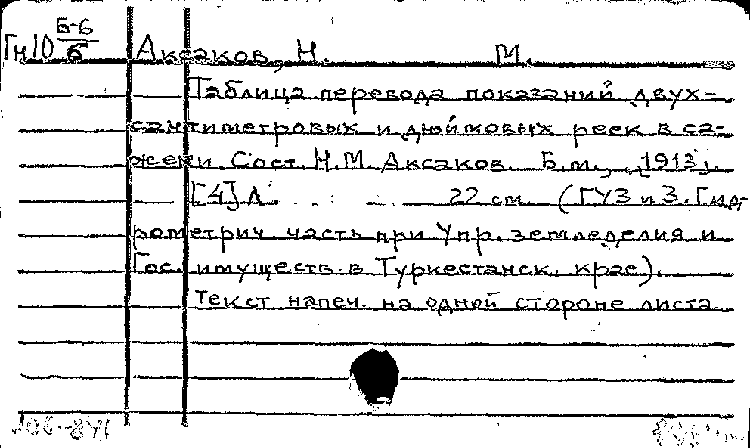 Гн10 Б-6/6 Аксаков, Н. М.
Таблица перевода показаний двух-
сантиметровых и дюймовых реек в са-
жени. Сост. Н.М. Аксаков. Б.м., 1913.
[4] л. 22 см. (ГУЗ и З. Гид-
рометрич. часть при Упр. земледелия и
Гос. имуществ в Туркестанск. крае).
Текст напеч. на одной стороне листа